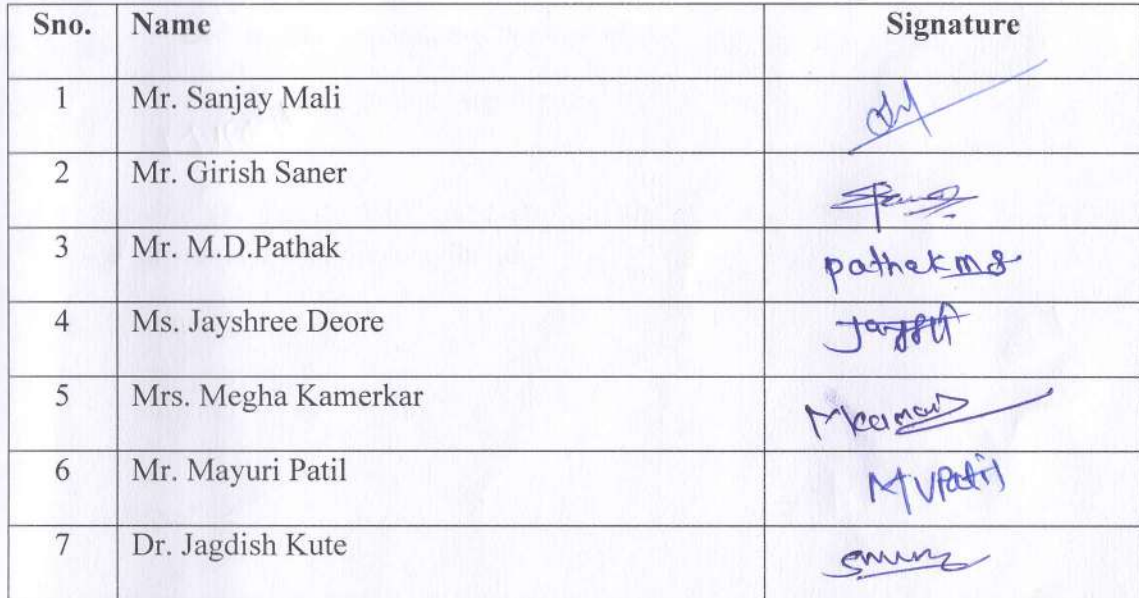 Sno. Name Signature
1 Mr. Sanjay Mali
2 Mr. Girish Saner
3 Mr. M.D.Pathak pathakmd
4 Ms. Jayshree Deore
5 Mrs. Megha Kamerkar
6 Mr. Mayuri Patil MVPatil
7 Dr. Jagdish Kute